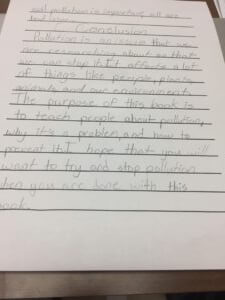 soil pollution is important all are
Conclusion
Pollution is an issue that we
are researching about so that
we can stop it. It affects a lot
of things like people, plants
animals and our environment.
The purpose of this book is
to teach people about pollution,
why it's a problem, and how to
prevent it. I hope that you will
want to try and stop pollution
when you are done with this
book.